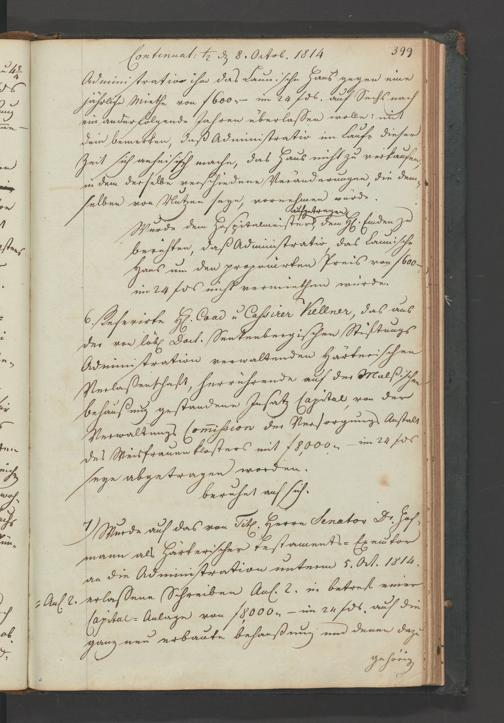 Continuat. t/2 d 8. Octob. 1814
399
Administratio ihm das Launische Haus gegen eine
jährliche Miethe von f 600.– in 24 f ds. auf Sechs nach
ein ander folgende Jahren überlassen wolle: mit
dem bemerken, daß Administratio im laufe dieser
Zeit sich anheischig mache, das Haus nicht zu verkaufen,
in dem derselbe verschiedene Veränderungen, die dem
selben von Nutzen seye, vornehmen würde.
aufgetragen
Wurde dem Hospitalmeister, dem H. Emden zu
berichten, daß Administratio das Launische
Haus um den Preis von f 600.–
in 24 f ds nicht vermiethen würde.
6./ Referirte H. Coad. u Cassirer Kellner, das aus
der von löbl. Doct. Senkenbergischen Stiftungs
Administration verwaltenden Härterischen
Verlassenschaft, herrührende auf der
behaußung gestandene Insatz Capital, von der
Verwaltungs Comission der Versorgungs Anstalt
des Weisfrauenklosters mit f 8,000.– in 24 f ds
seye abgetragen worden.
beruhet auf sich.
7) Wurde auf das von Titl. Herrn Senator Dr. Hof-
mann als Härterischer Testaments-Executor
an die Administration unterm 5. Oct. 1814.
= Anl. 2. erlassene Schreiben Anl. 2. in betref einer
Capital-Anlage von f 8000.– im 24 f ds. auf die
ganz neu erbaute behaußung und denen dazu
gehörig